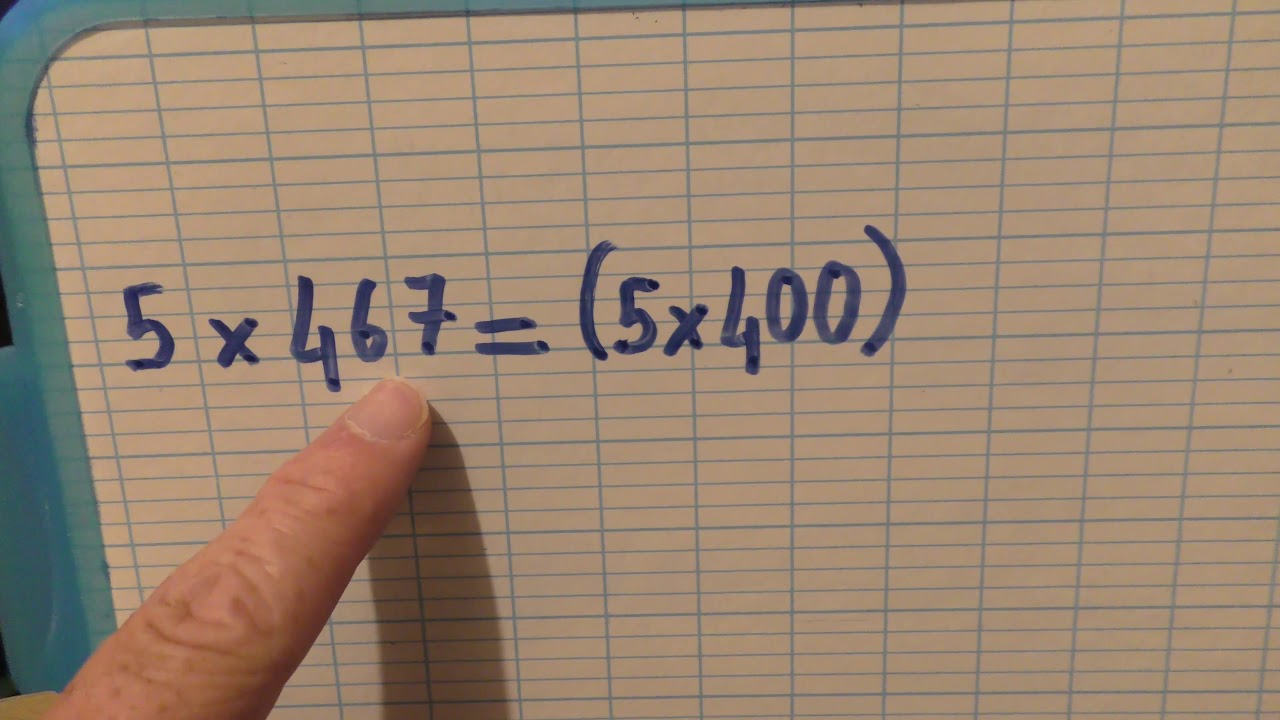 5 x 467 = (5x400)